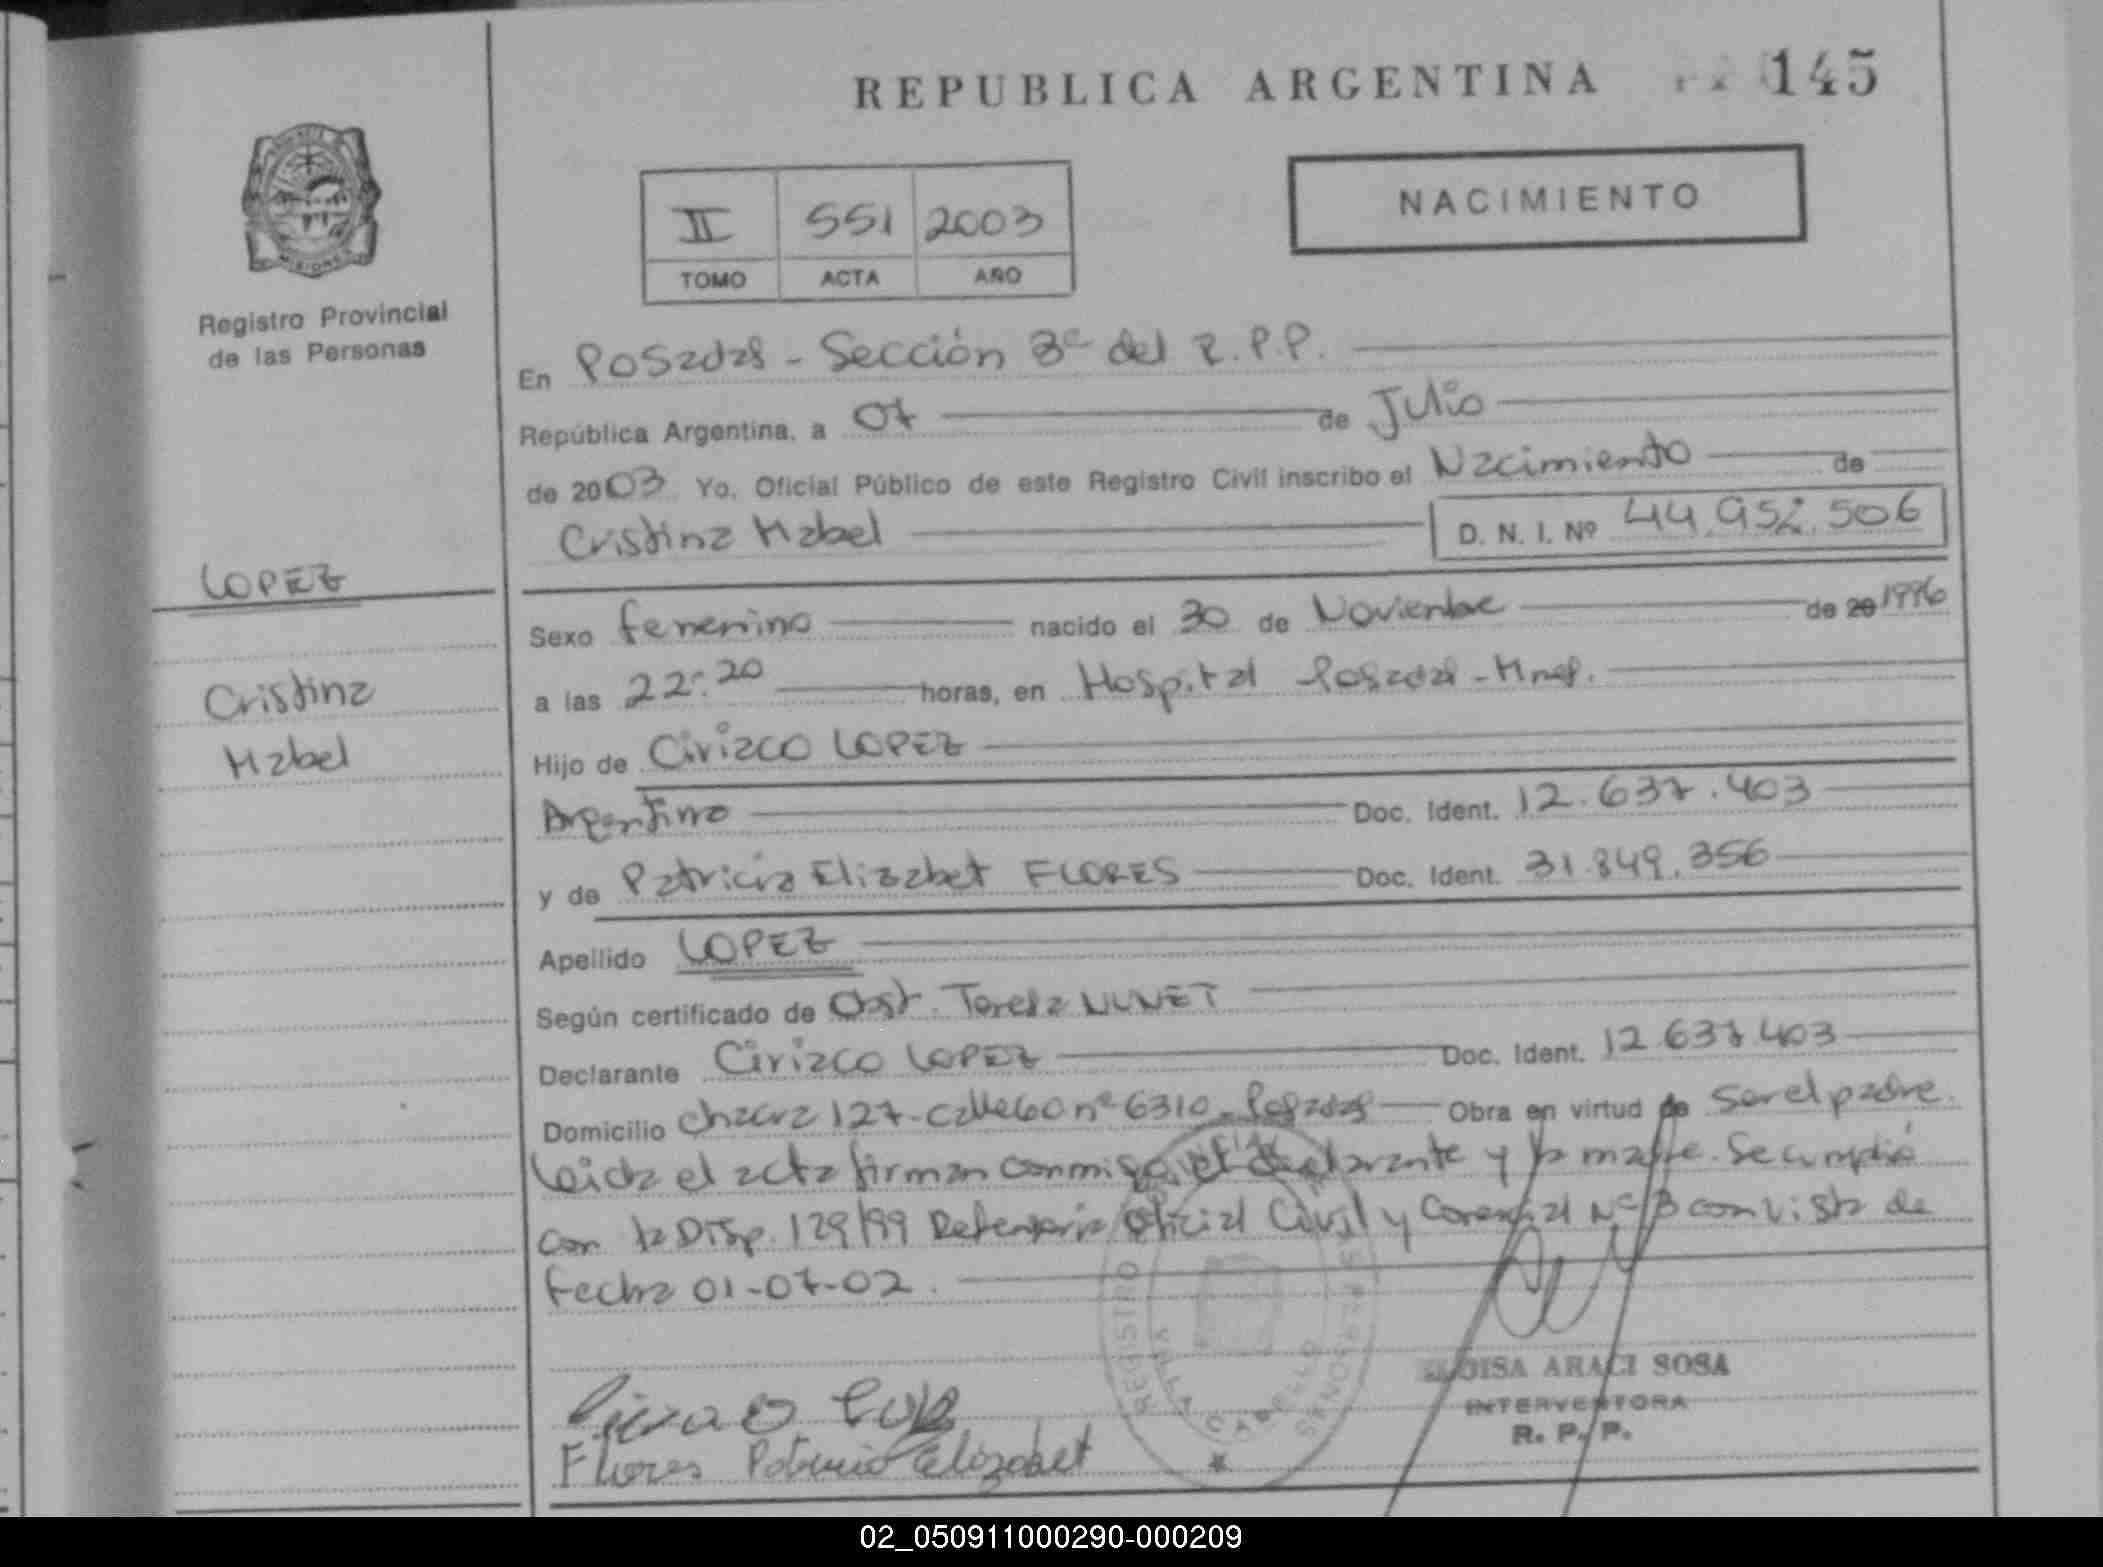 REPUBLICA ARGENTINA 145
NACIMIENTO
II 551 2003
TOMO ACTA AÑO
Registro Provincial
de las Personas
En Posadas - Sección 3ª del R.P.P.
República Argentina, a 07 de Julio
de 2003 Yo, Oficial Público de este Registro Civil inscribo el Nacimiento de
Cristina Mabel D. N. I. Nº 44.952.506
LOPEZ
Cristina
Mabel
Sexo femenino nacido el 30 de Noviembre de 20 1996
a las 22:20 horas, en Hospital Posadas - Mnes.
Hijo de Ciriaco LOPEZ
Argentino Doc. Ident. 12.637.403
y de Patricia Elizabet FLORES Doc. Ident. 31.849.356
Apellido LOPEZ
Según certificado de Obst. Teresa
Declarante Ciriaco LOPEZ Doc. Ident. 12.637.403
Domicilio Chacra 127 - calle 60 nº 6310 - Posadas Obra en virtud de ser el padre.
Leida el acta firman conmigo, el declarante y la madre. Se cumplió
con la Disp. 129/99 Defensoría Oficial Civil y Comercial Nº 3 con vista de
fecha 01-07-02.
REGISTRO PERSONAS
CABELLO
ELOISA ARACI SOSA
INTERVENTORA
R. P. P.
Flores Patricia Elizabet
02_050911000290-000209